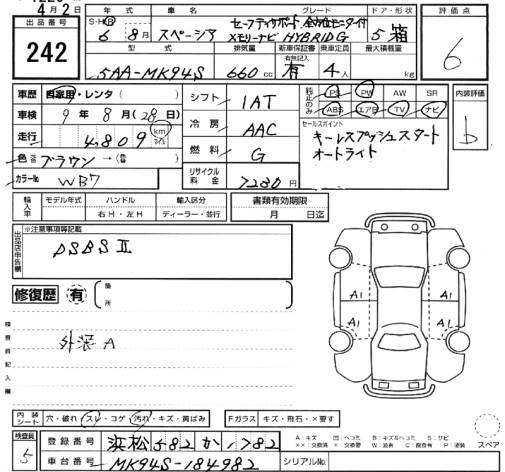 4月2日
出品番号
242
年式 車名 グレード ドア・形状
S・H・R
6年 8月 スペーシア
セーフティサポート 全方位モニタ付
メモリーナビ HYBRID G 5 箱
評価点
6
型式 排気量 新車保証書 乗車定員 最大積載量
有無記入
5AA-MK94S 660cc 有 4人 kg
車歴 自家用・レンタ( )
車検 9年8月(28日)
走行 4,809 km マイル
色 ブラウン→( )
カラーNo WB7
シフト 1AT
冷房 AAC
燃料 G
リサイクル料金 7280円
純正のみ PS PW AW SR
ABS エアB TV ナビ
セールスポイント
キーレスプッシュスタート
オートライト
内装評価
b
輸入車 モデル年式 ハンドル 輸入区分
右H・左H ディーラー・並行
書類有効期限
月 日迄
出品店申告欄
※注意事項等記載
DSBSⅡ
修復歴 有 箇所
検査員記入欄
外装A
A1 A1
A1 A1
内装シート 穴・破れ スレ・コゲ 汚れ・キズ・黄ばみ
Fガラス キズ・飛石・×要す
スペア
検査員
5
登録番号 浜松582か1782
車台番号 MK94S-184982
シリアルNo.